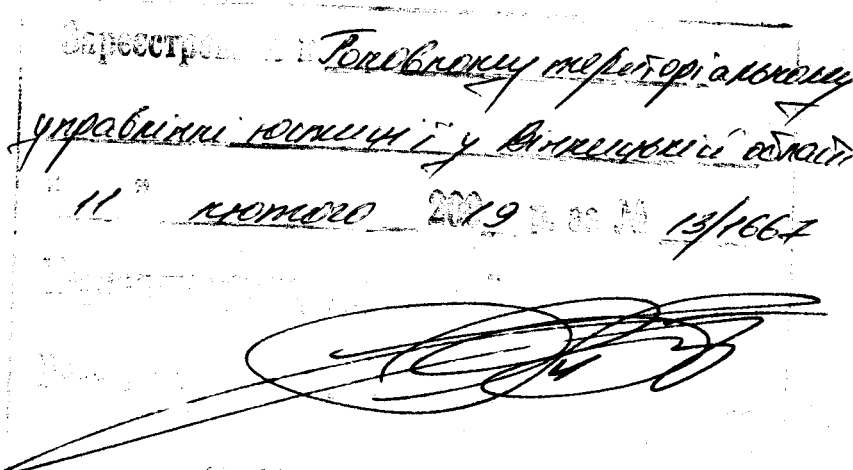 Зареєстровано в Головному територіальному
управлінні юстиції у Вінницькій області
"11" лютого 2019 р. за № 13/1667